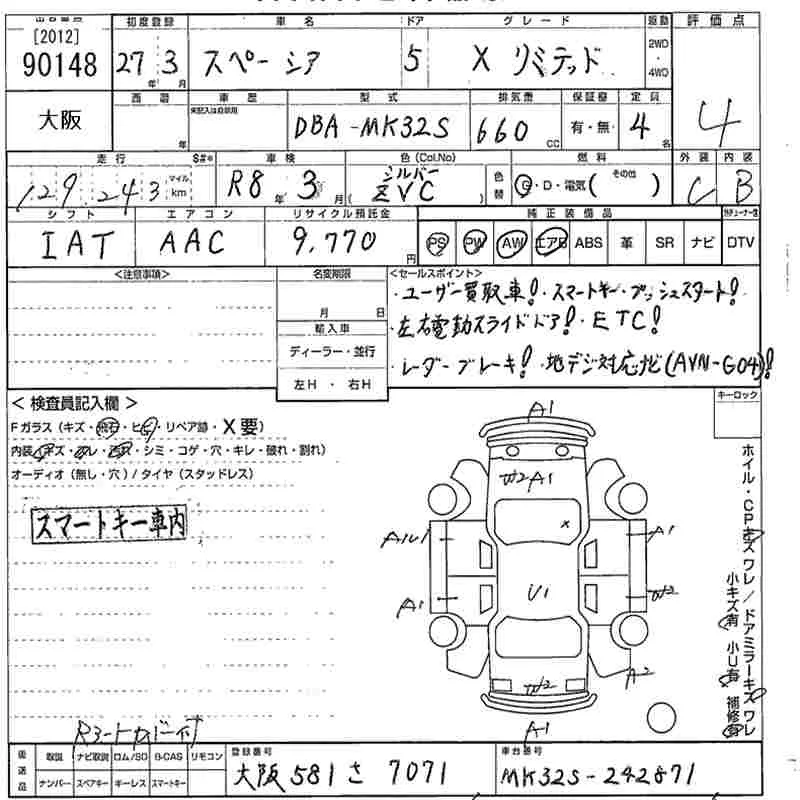 [2012]
90148
大阪
初度登録
27年 3月
車名
スペーシア
ドア
5
グレード
X リミテッド
駆動
2WD
・
4WD
評価点
4
西暦
年
車歴
未記入は自家用
型式
DBA-MK32S
排気量
660 CC
保証書
有・無
定員
4名
走行 S#*
129,243 マイル km
車検
R8年 3月
色(Col.No)
シルバー
ZVC
色替
燃料
G・D・電気( その他 )
外装
C
内装
B
シフト
IAT
エアコン
AAC
リサイクル預託金
9,770円
純正装備品
PS PW AW エアB ABS 革 SR ナビ DTV
<注意事項>
名変期限
月 日
輸入車
ディーラー・並行
左H・右H
<セールスポイント>
・ユーザー買取車!・スマートキー・プッシュスタート!
・左右電動スライドドア!・ETC!
・レーダーブレーキ!地デジ対応ナビ(AVN-G04)!
キーロック
<検査員記入欄>
Fガラス(キズ・飛石・ヒビ・リペア跡・X要)
内装(キズ・ヨレ・汚れ・シミ・コゲ・穴・キレ・破れ・割れ)
オーディオ(無し・穴)/タイヤ(スタッドレス)
スマートキー車内
A1
W2 A1
X
AU1
A1
A1
U1
W2
A2
W2
A1
ホイル・CPキズワレ/ドアミラーキズワレ
小キズ有 小U有 補修有
後送品
取説 ナビ取説 ロム/SD B-CAS リモコン
ナンバー スペアキー キーレス スマートキー
登録番号
大阪 581 さ 7071
車台番号
MK32S-242871